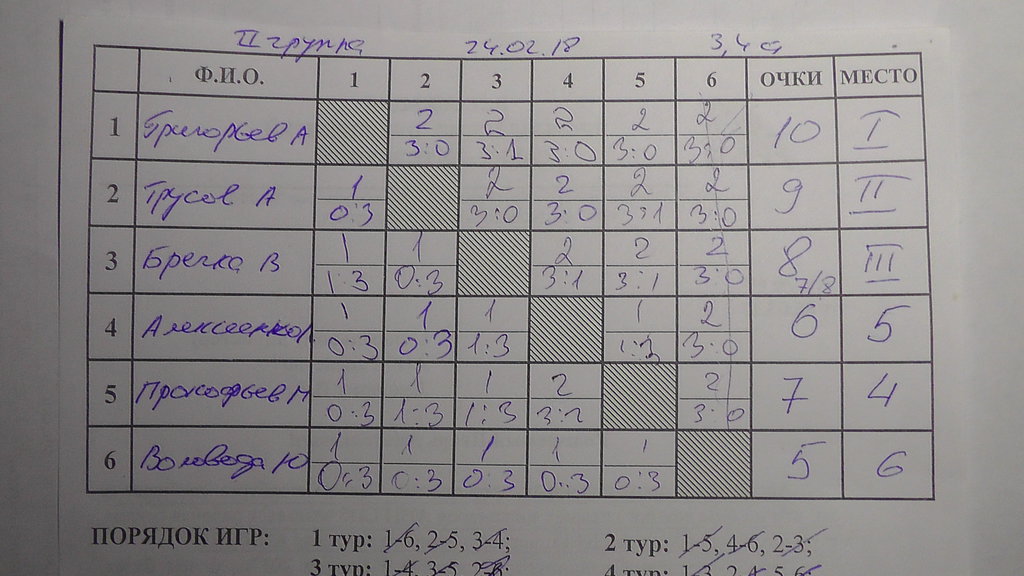 II группа 24.02.18 3,4 а
Ф.И.О. 1 2 3 4 5 6 ОЧКИ МЕСТО
1 Григорьев А 2 2 2 2 2 10 I
3:0 3:1 3:0 3:0 3:0
2 Трусов А 1 2 2 2 2 9 II
0:3 3:0 3:0 3:1 3:0
3 Брегка В 1 1 2 2 2 8 III
1:3 0:3 3:1 3:1 3:0 7/8
4 1 1 1 1 2 6 5
0:3 0:3 1:3 3:0
5 Прокофьев М 1 1 1 2 2 7 4
0:3 1:3 1:3 3:2 3:0
6 Воевода Ю 1 1 1 1 1 5 6
0:3 0:3 0:3 0:3 0:3
ПОРЯДОК ИГР: 1 тур: 1-6, 2-5, 3-4; 2 тур: 1-5, 4-6, 2-3;
3 тур: 1-4, 3-5, 2-6; 4 тур: 1-3, 2-4, 5-6;